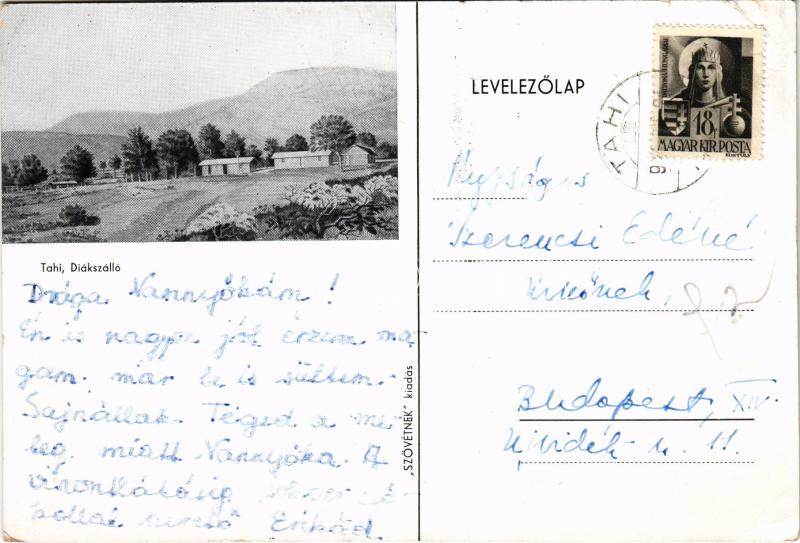 Tahi, Diákszálló
Drága Nannyókám!
Én is nagyon jól érzem ma-
gam, már le is sültem.
Sajnállak Téged a me-
leg miatt Nannyóka. A
viszontlátásig
szerető Erikád
„SZÖVÉTNEK" kiadás
LEVELEZŐLAP
TAHI
18f
MAGYAR KIR. POSTA
Nagyságos
Szerencsi Edéné
úrnőnek,
Budapest, XIV.
Ujvidék u. 11.